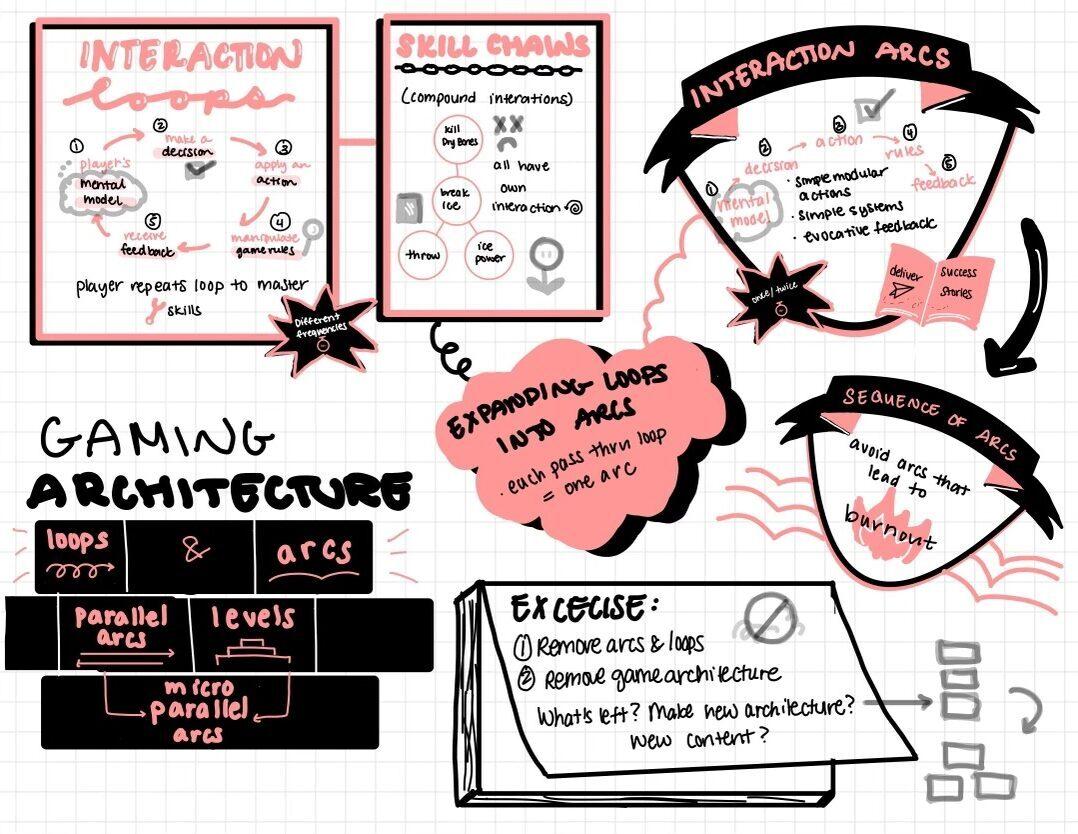 INTERACTION
loops
①
player's
mental
model
②
make a
decision
③
apply an
action
④
manipulate
game rules
⑤
receive
feedback
player repeats loop to master
skills
Different
frequencies
SKILL CHAINS
(compound interations)
kill
Dry Bones
break
ice
throw
ice
power
all have
own
interaction
INTERACTION ARCS
①
mental
model
②
decision
③
action
④
rules
⑤
feedback
• simple modular
actions
• simple systems
• evocative feedback
once/twice
deliver
success
stories
EXPANDING LOOPS
INTO ARCS
• each pass thru loop
= one arc
SEQUENCE OF ARCS
avoid arcs that
lead to
burnout
GAMING
ARCHITECTURE
loops
&
arcs
parallel
arcs
levels
micro
parallel
arcs
EXCECISE:
① Remove arcs & loops
② Remove game architecture
What's left? Make new architecture?
New content?